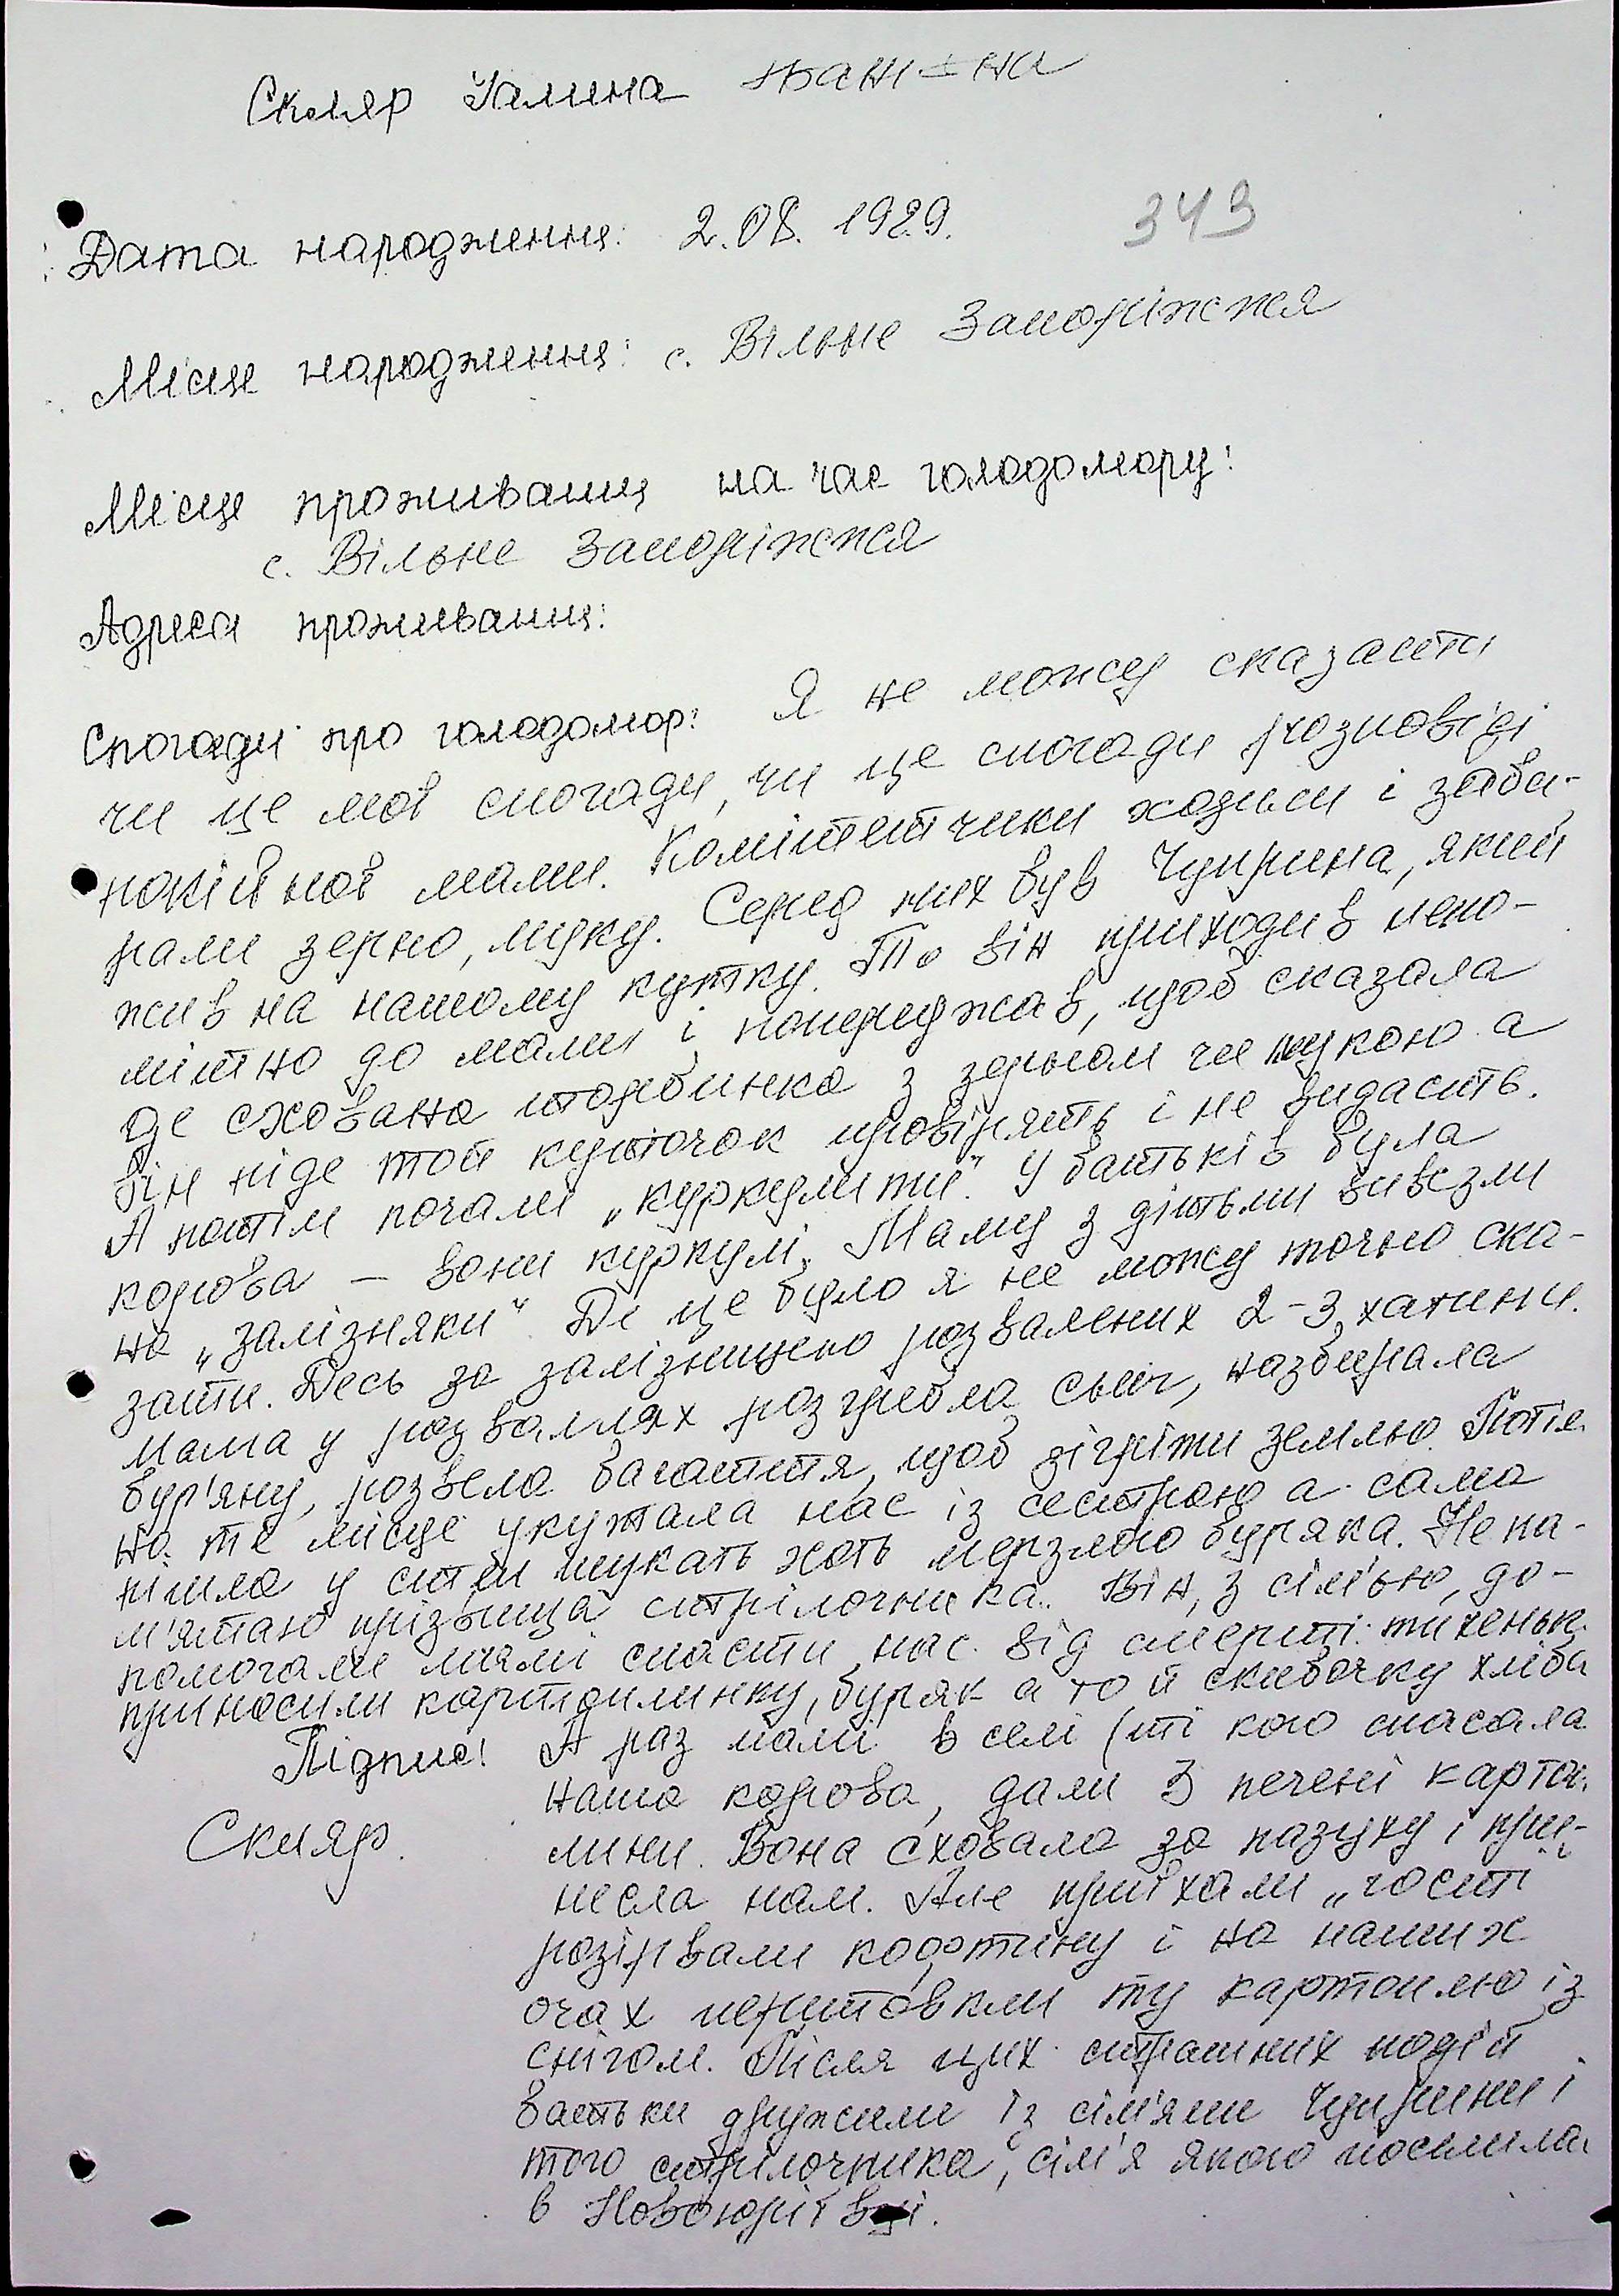 Скляр Галина Іванівна
343
Дата народження: 2.08. 1929.
Місце народження: с. Вільне Запоріжжя
Місце проживання на час голодомору:
с. Вільне Запоріжжя
Адреса проживання:
Спогади про голодомор: Я не можу сказати
чи це мої спогади, чи це спогади розповіді
покійної мами. Комітетчики ходили і заби-
рали зерно, муку. Серед них був Чуприна, який
жив на нашому кутку. То він приходив непо-
мітно до мами і попереджав, щоб сказала
де схована торбинка з зерном чи мукою а
він піде той куточок провірить і не видасть.
А потім почали „куркулити". У батьків була
корова — вони куркулі. Маму з дітьми вивезли
на „залізняки". Де це було я не можу точно ска-
зати. Десь за залізницею розвалених 2-3 хатини.
Мама у розвалинах розгребла сніг, назбирала
бур'яну, розвела багаття, щоб зігріти землю. Потім
на те місце укутала нас із сестрою а сама
пішла у степ шукать хоть мерзлого буряка. Не па-
м'ятаю прізвища стрілочника. Він, з сім'єю, до-
помогали мамі спасти нас від смерті: тихеньк
приносили картоплинку, буряк а то й скибочку хліба
Підпис! А раз мамі в селі (ті кого спасала
наша корова, дали 3 печені картоп
лини. Вона сховала за пазуху і при-
несла нам. Але приїхали „гості
розірвали кофтину і на наших
очах перетовкли ту картоплю із
снігом. Після цих страшних подій
батьки дружили із сім'ями Чуприни і
того стрілочника, сім'я якого поселила
в Новоюріївці.
Скляр.